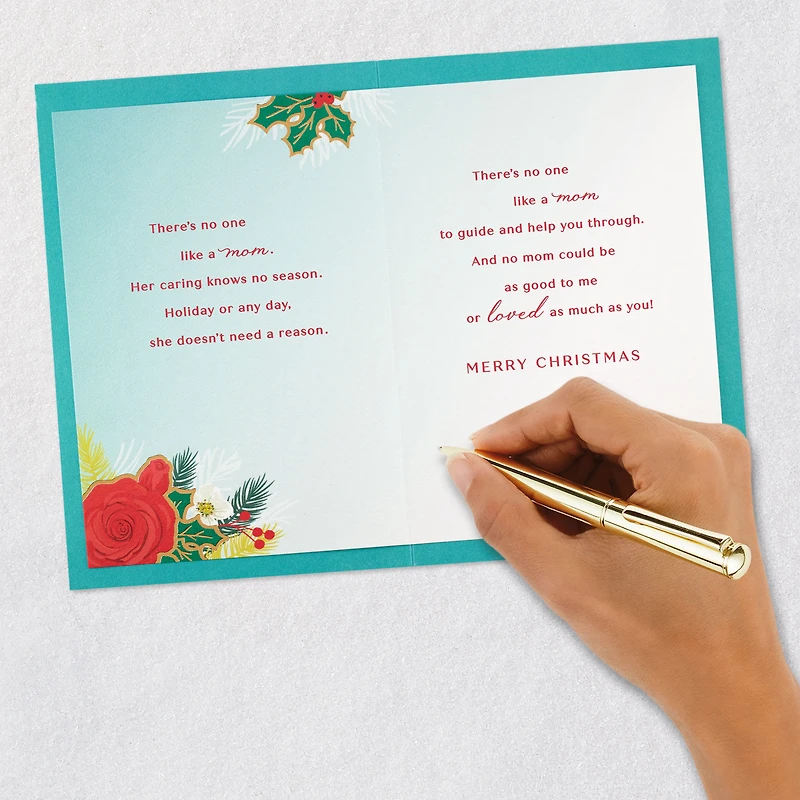 There's no one
like a mom.
Her caring knows no season.
Holiday or any day,
she doesn't need a reason.
There's no one
like a mom
to guide and help you through.
And no mom could be
as good to me
or loved as much as you!
MERRY CHRISTMAS